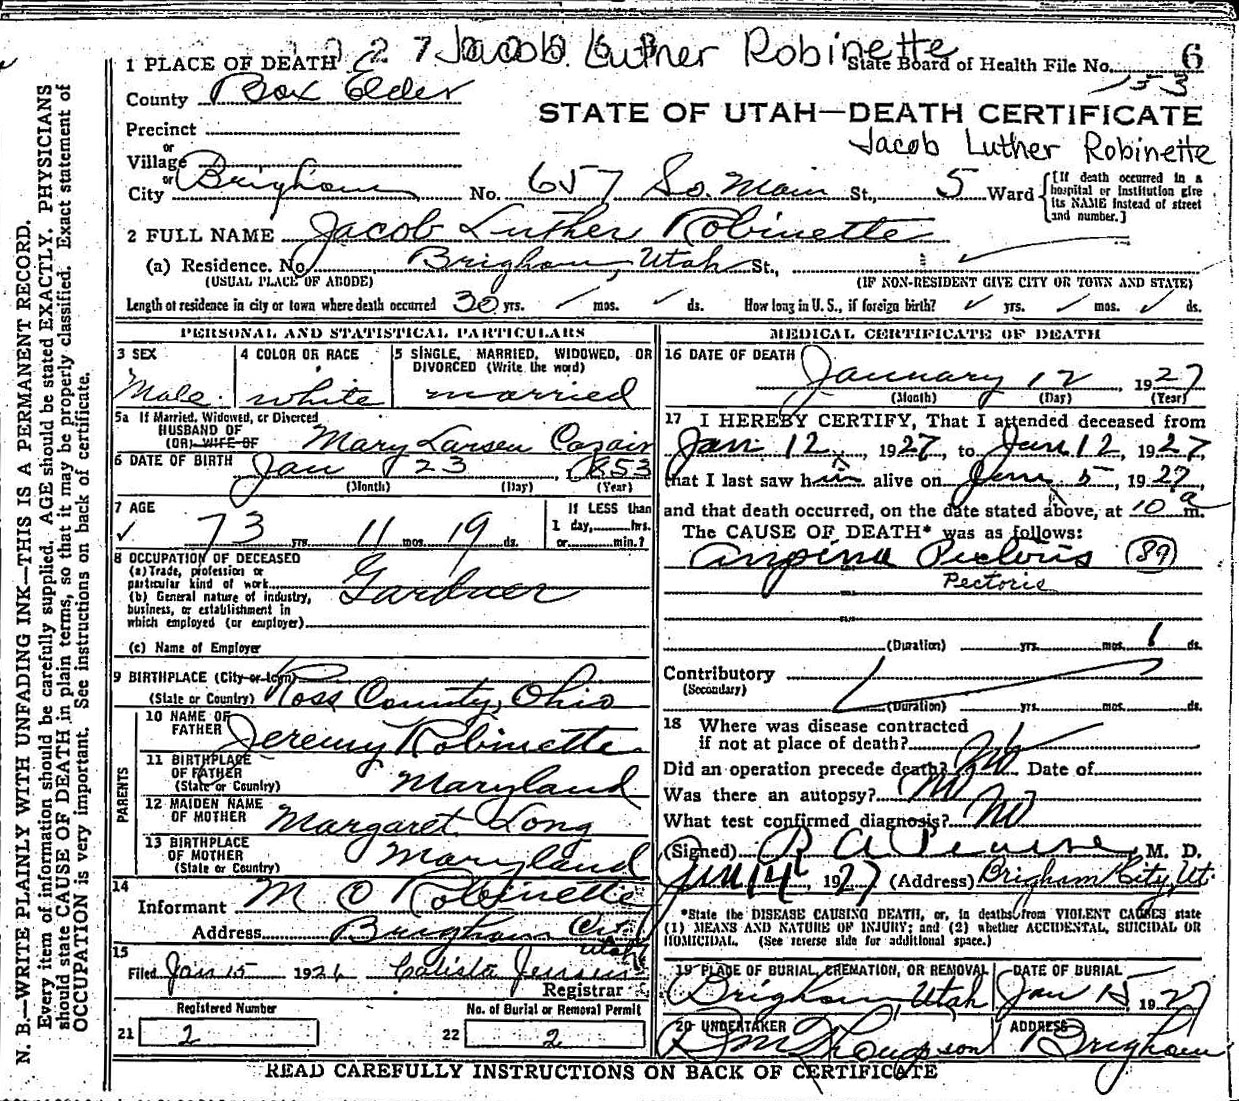 2 7 Jacob Luther Robinette
1 PLACE OF DEATH
State Board of Health File No. 6
153
County Box Elder
STATE OF UTAH—DEATH CERTIFICATE
Precinct
Jacob Luther Robinette
or
Village
or
City Brigham No. 657 So. Main St., 5 Ward [If death occurred in a hospital or institution give its NAME instead of street and number.]
2 FULL NAME Jacob Luther Robinette
(a) Residence. No. Brigham, Utah St.,
(USUAL PLACE OF ABODE) (IF NON-RESIDENT GIVE CITY OR TOWN AND STATE)
Length of residence in city or town where death occurred 30 yrs. mos. ds. How long in U. S., if foreign birth? yrs. mos. ds.
PERSONAL AND STATISTICAL PARTICULARS
3 SEX
Male
4 COLOR OR RACE
white
5 SINGLE, MARRIED, WIDOWED, OR DIVORCED (Write the word)
married
5a If Married, Widowed, or Divorced
HUSBAND OF
(OR) WIFE OF Mary Larsen
6 DATE OF BIRTH Jan 23, 1853
(Month) (Day) (Year)
7 AGE
73 yrs. 11 mos. 19 ds.
If LESS than
1 day, hrs.
or min.?
8 OCCUPATION OF DECEASED
(a) Trade, profession or
particular kind of work Gardner
(b) General nature of industry,
business, or establishment in
which employed (or employer)
(c) Name of Employer
9 BIRTHPLACE (City or town)
(State or Country) Ross County, Ohio
PARENTS
10 NAME OF
FATHER Jeremy Robinette
11 BIRTHPLACE
OF FATHER
(State or Country) Maryland
12 MAIDEN NAME
OF MOTHER Margaret Long
13 BIRTHPLACE
OF MOTHER
(State or Country) Maryland
14
Informant M O Robinette
Address Brigham City
Utah
15
Filed Jan 15 1926 Calista Jensen
Registrar
Registered Number
21 2
No. of Burial or Removal Permit
22 2
MEDICAL CERTIFICATE OF DEATH
16 DATE OF DEATH
January 12, 1927
(Month) (Day) (Year)
17 I HEREBY CERTIFY, That I attended deceased from
Jan 12, 1927, to Jan 12, 1927,
that I last saw him alive on Jan 5, 1927
and that death occurred, on the date stated above, at 10 a m.
The CAUSE OF DEATH* was as follows:
Angina Pectoris 89
Pectoris
(Duration) yrs. mos. 1 ds.
Contributory
(Secondary)
(Duration) yrs. mos. ds.
18 Where was disease contracted
if not at place of death?
Did an operation precede death? No Date of
Was there an autopsy? No
What test confirmed diagnosis? No
(Signed) R A Pearse, M. D.
Jan 14, 1927 (Address) Brigham City, Ut.
*State the DISEASE CAUSING DEATH, or, in deaths from VIOLENT CAUSES state
(1) MEANS AND NATURE OF INJURY; and (2) whether ACCIDENTAL, SUICIDAL OR
HOMICIDAL. (See reverse side for additional space.)
19 PLACE OF BURIAL, CREMATION, OR REMOVAL
Brigham, Utah
DATE OF BURIAL
Jan 15 1927
20 UNDERTAKER
Thompson
ADDRESS
Brigham
READ CAREFULLY INSTRUCTIONS ON BACK OF CERTIFICATE
N. B.—WRITE PLAINLY WITH UNFADING INK—THIS IS A PERMANENT RECORD.
Every item of information should be carefully supplied. AGE should be stated EXACTLY. PHYSICIANS
should state CAUSE OF DEATH in plain terms, so that it may be properly classified. Exact statement of
OCCUPATION is very important. See instructions on back of certificate.